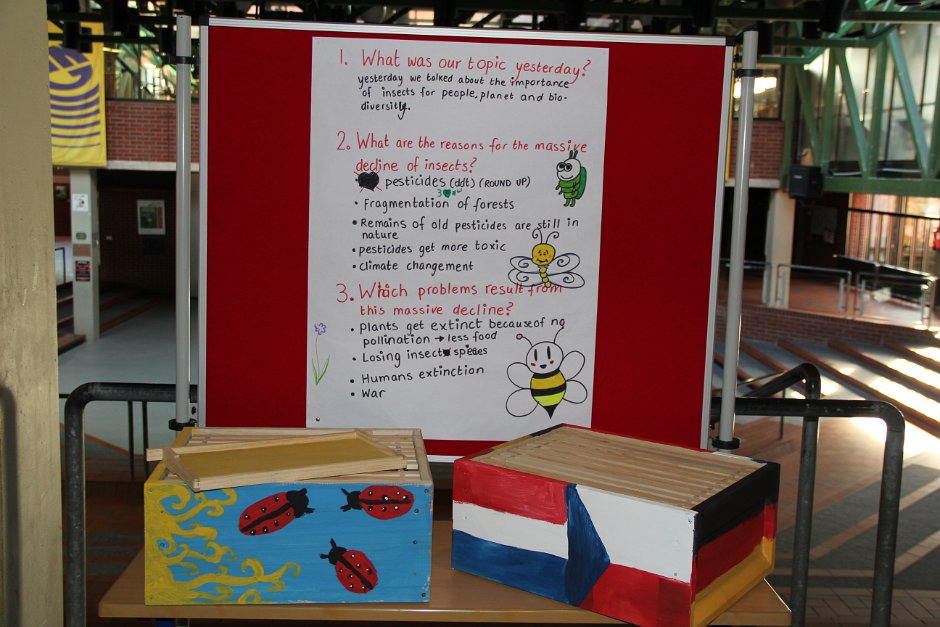 1. What was our topic yesterday?
yesterday we talked about the importance
of insects for people, planet and bio-
diversity.
2. What are the reasons for the massive
decline of insects?
pesticides (ddt) (ROUND UP)
• Fragmentation of forests
• Remains of old pesticides are still in
nature
• pesticides get more toxic
• climate changement
3. Which problems result from
this massive decline?
• Plants get extinct because of no
pollination → less food
• Losing insect species
• Humans extinction
• War